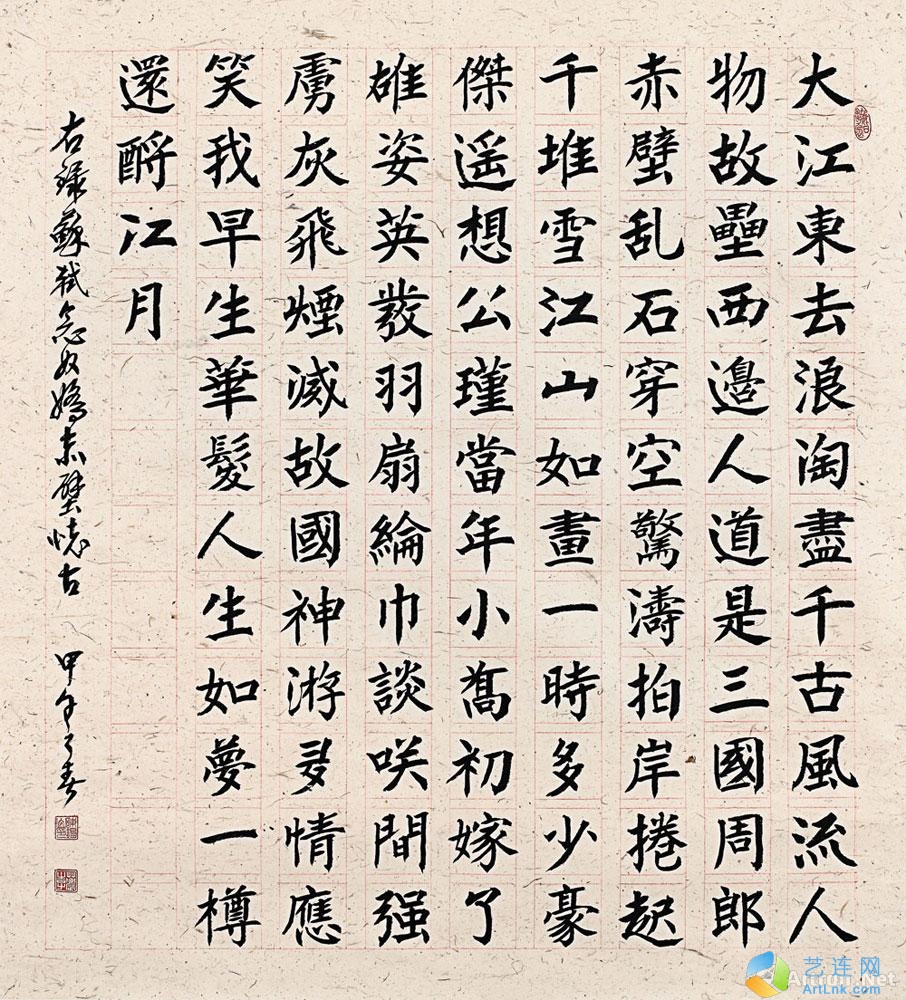 大江東去浪淘盡千古風流人
物故壘西邊人道是三國周郎
赤壁乱石穿空驚濤拍岸捲起
千堆雪江山如畫一時多少豪
傑遥想公瑾當年小喬初嫁了
雄姿英發羽扇綸巾談咲間强
虜灰飛煙滅故國神游多情應
笑我早生華髮人生如夢一樽
還酹江月
右録蘇軾念奴嬌赤壁懷古
甲午之春
艺连网
ArtLnk.com
Artron.Net